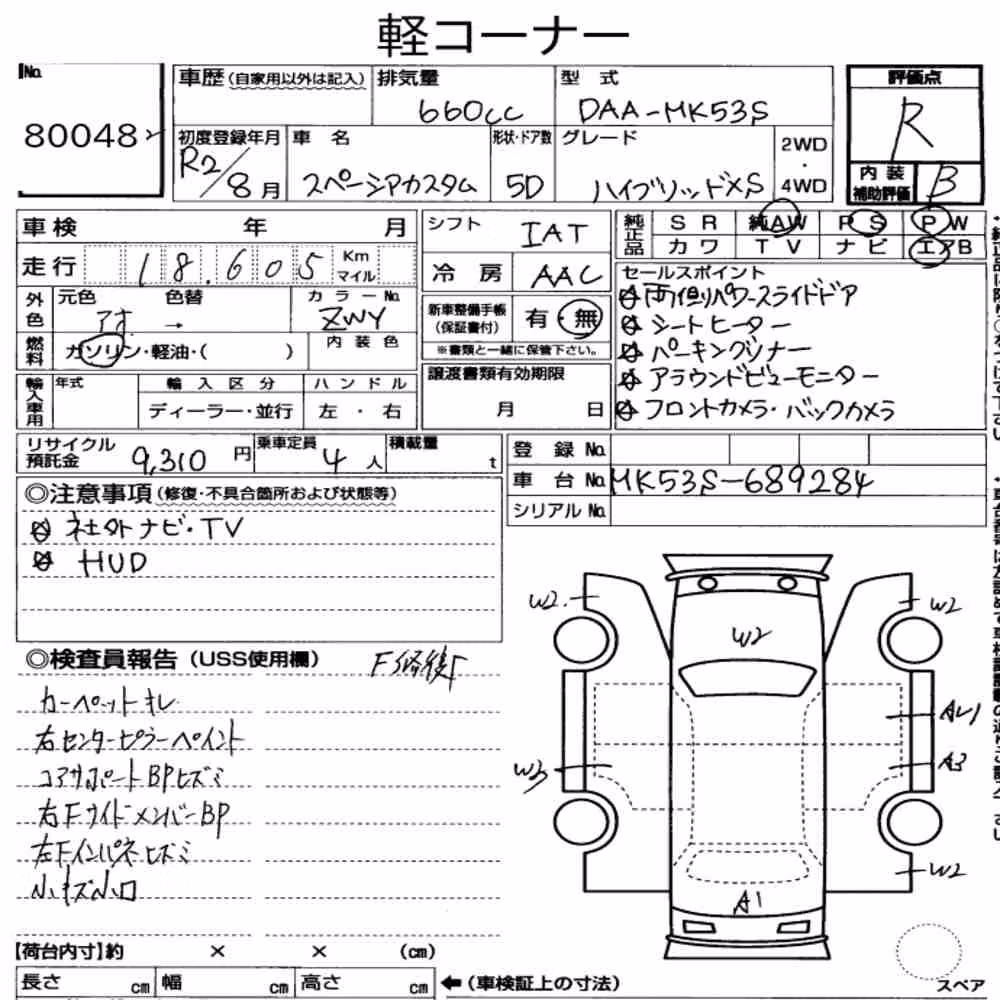 軽コーナー
No.
80048
車歴（自家用以外は記入）
排気量
660cc
型 式
DAA-MK53S
評価点
R
初度登録年月
R2/8月
車 名
スペーシアカスタム
形状・ドア数
5D
グレード
ハイブリッドXS
2WD
・
4WD
内 装
補助評価
B
車検 年 月
走行 18.605 Km
マイル
外色
元色 色替
アオ →
カラーNo.
ZWY
燃料
ガソリン・軽油・( )
内 装 色
輸入車用
年式
輸 入 区 分
ディーラー・並行
ハ ン ド ル
左 ・ 右
シフト IAT
冷 房 AAC
新車整備手帳
（保証書付）
有・無
※書類と一緒に保管下さい。
譲渡書類有効期限
月 日
純正品
S R 純AW P S P W
カワ T V ナビ エアB
セールスポイント
両側パワースライドドア
シートヒーター
パーキングソナー
アラウンドビューモニター
フロントカメラ・バックカメラ
リサイクル
預託金
9,310円
乗車定員
4人
積載量
t
登 録 No.
車 台 No. MK53S-689284
シリアル No.
◎注意事項（修復・不具合箇所および状態等）
社外ナビ・TV
HUD
◎検査員報告（USS使用欄）
F修復F
カーペットキレ
右センターピラーペイント
コアサポートBPヒズミ
右FサイドメンバーBP
左Fインパネヒズミ
小キズ小凹
W2
W2
W2
AU1
A3
W3
W2
A1
【荷台内寸】約 × × (cm)
長さ cm
幅 cm
高さ cm
←（車検証上の寸法）
スペア